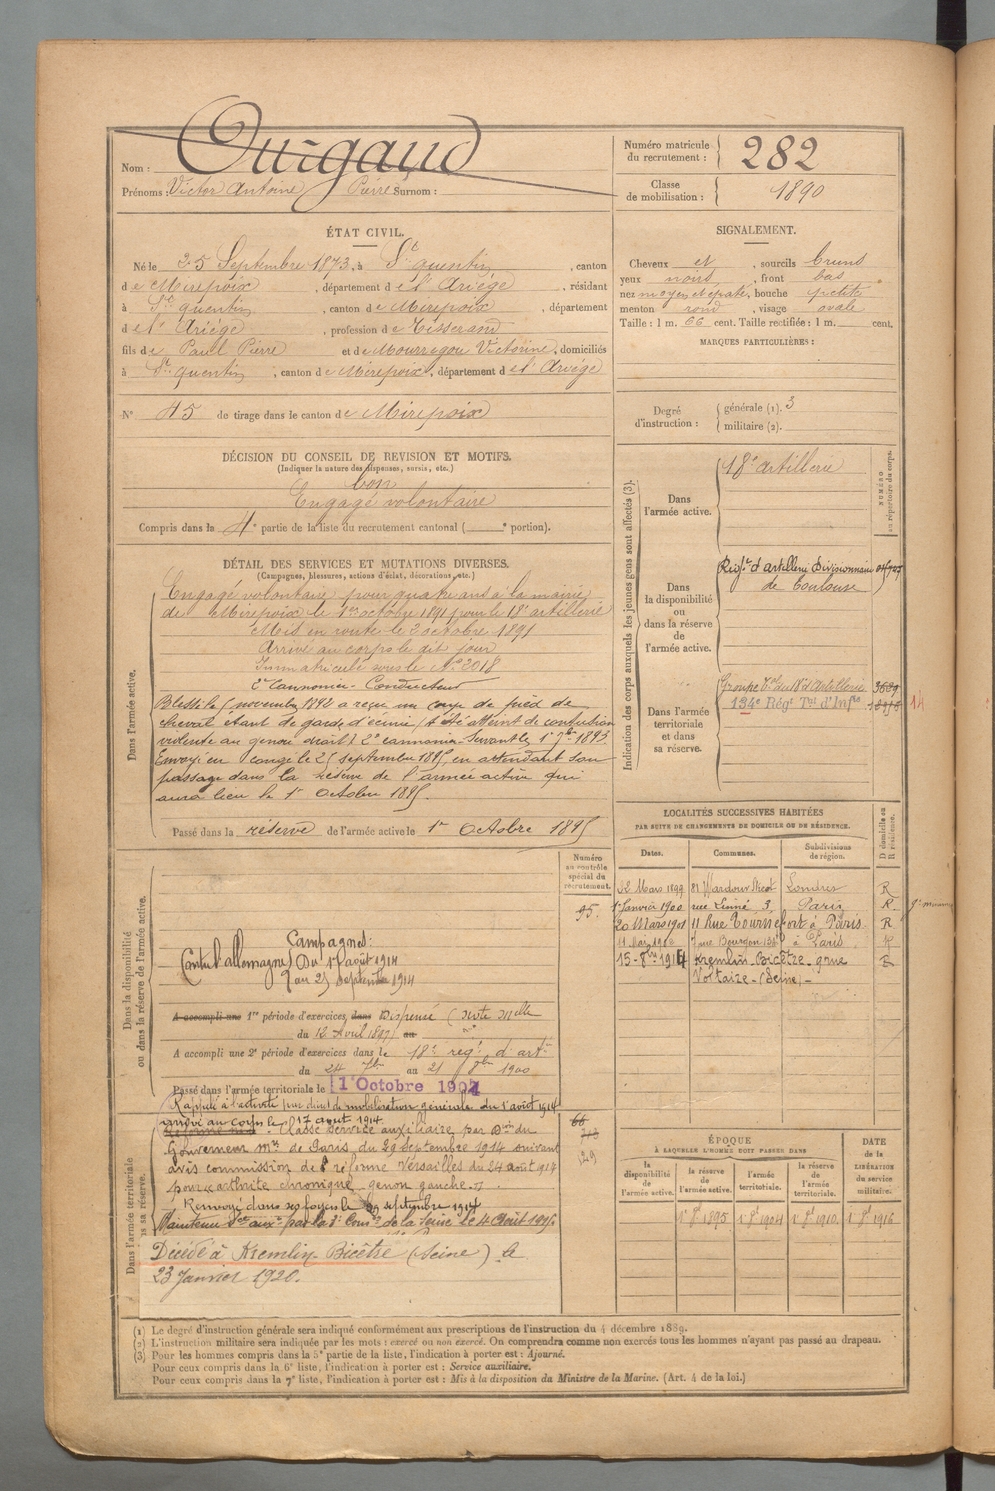 Nom : Ourgaud
Prénoms : Victor Antoine Pierre Surnom :
Numéro matricule du recrutement : 282
Classe de mobilisation : 1890
ÉTAT CIVIL.
Né le 25 Septembre 1873, à St quentin, canton
de Mirepoix, département de l'Ariége, résidant
à St quentin, canton de Mirepoix, département
de l'Ariége, profession de Tisserand
fils de Paul Pierre et de Mourregou Victorine, domiciliés
à St quentin, canton de Mirepoix, département de l'Ariége
N° 45 de tirage dans le canton de Mirepoix
SIGNALEMENT.
Cheveux et, sourcils bruns
yeux noirs, front bas
nez moyen et épaté, bouche petite
menton rond, visage ovale
Taille : 1 m. 66 cent. Taille rectifiée : 1 m. cent.
MARQUES PARTICULIÈRES :
Degré d'instruction : générale (1). 3
militaire (2).
DÉCISION DU CONSEIL DE REVISION ET MOTIFS.
(Indiquer la nature des dispenses, sursis, etc.)
bon
Engagé volontaire
Compris dans la 4e partie de la liste du recrutement cantonal ( e portion).
DÉTAIL DES SERVICES ET MUTATIONS DIVERSES.
(Campagnes, blessures, actions d'éclat, décorations, etc.)
Dans l'armée active.
Engagé volontaire pour quatre ans à la mairie
de Mirepoix le 1er octobre 1891 pour le 18e artillerie
Mis en route le 2 octobre 1891
Arrivé au corps le dit jour
Immatriculé sous le No 2018
2e Cannonier Conducteur
Blessé le novembre 1892 a reçu un coup de pied de
cheval étant de garde d'écurie (A été atteint de contusion
violente au genou droit) 2e cannonier Servant le 1er 7bre 1893
Envoyé en congé le 25 septembre 1895, en attendant son
passage dans la réserve de l'armée active qui
aura lieu le 1er Octobre 1895.
Passé dans la réserve de l'armée active le 1er Octobre 1895
Indication des corps auxquels les jeunes gens sont affectés (3).
NUMÉRO au répertoire du corps.
Dans l'armée active.
18e artillerie
Dans la disponibilité ou dans la réserve de l'armée active.
Régt d'artillerie Divisionnaire
de Toulouse
Dans l'armée territoriale et dans sa réserve.
Groupe Tal du 18e d'Artillerie 3689
134e Régt Tal d'Infie 14
LOCALITÉS SUCCESSIVES HABITÉES
PAR SUITE DE CHANGEMENTS DE DOMICILE OU DE RÉSIDENCE.
Dates. Communes. Subdivisions de région. D domicile ou R résidence.
22 Mars 1899 81 Wardour Londres R
1er Janvier 1900 rue Linné 3, Paris R
20 Mars 1901 11 Rue Tournefort à Paris R
à Paris R
15 - 8bre 1914 Kremlin-Bicêtre - 9 rue R
Voltaire - (Seine) -
Numéro au contrôle spécial du recrutement.
95.
Dans la disponibilité ou dans la réserve de l'armée active.
Campagnes :
Contre l'allemagne Du 17 août 1914
au 29 Septembre 1914
A accompli une 1re période d'exercices dans Dispensé (note Mielle
du 12 Avril 1897) au
A accompli une 2e période d'exercices dans le 18e régt d'artie
du 24 7bre au 21 8bre 1900
Passé dans l'armée territoriale le 1er Octobre 1904
Dans l'armée territoriale
Rappelé à l'activité par décret de mobilisation générale du 1er août 1914
arrivé au corps le 17 août 1914
Classé Service auxiliaire par Don du
Gouverneur Mre de Paris du 29 Septembre 1914 suivant
avis commission de réforme Versailles du 24 août 1914
pour "arthrite chronique genou gauche".
Renvoyé dans ses foyers le 29 septembre 1914
Maintenu Sce auxre par la 3e Comon de la Seine le 4 Août 1916
Décédé à Kremlin-Bicêtre (Seine) le
23 Janvier 1920.
ÉPOQUE
À LAQUELLE L'HOMME DOIT PASSER DANS
la disponibilité de l'armée active. la réserve de l'armée active. l'armée territoriale. la réserve de l'armée territoriale. DATE de la LIBÉRATION du service militaire.
1er 8bre 1895 1er 8bre 1904 1er 8bre 1910. 1er 8bre 1916
(1) Le degré d'instruction générale sera indiqué conformément aux prescriptions de l'instruction du 4 décembre 1889.
(2) L'instruction militaire sera indiquée par les mots : exercé ou non exercé. On comprendra comme non exercés tous les hommes n'ayant pas passé au drapeau.
(3) Pour les hommes compris dans la 5e partie de la liste, l'indication à porter est : Ajourné.
Pour ceux compris dans la 6e liste, l'indication à porter est : Service auxiliaire.
Pour ceux compris dans la 7e liste, l'indication à porter est : Mis à la disposition du Ministre de la Marine. (Art. 4 de la loi.)